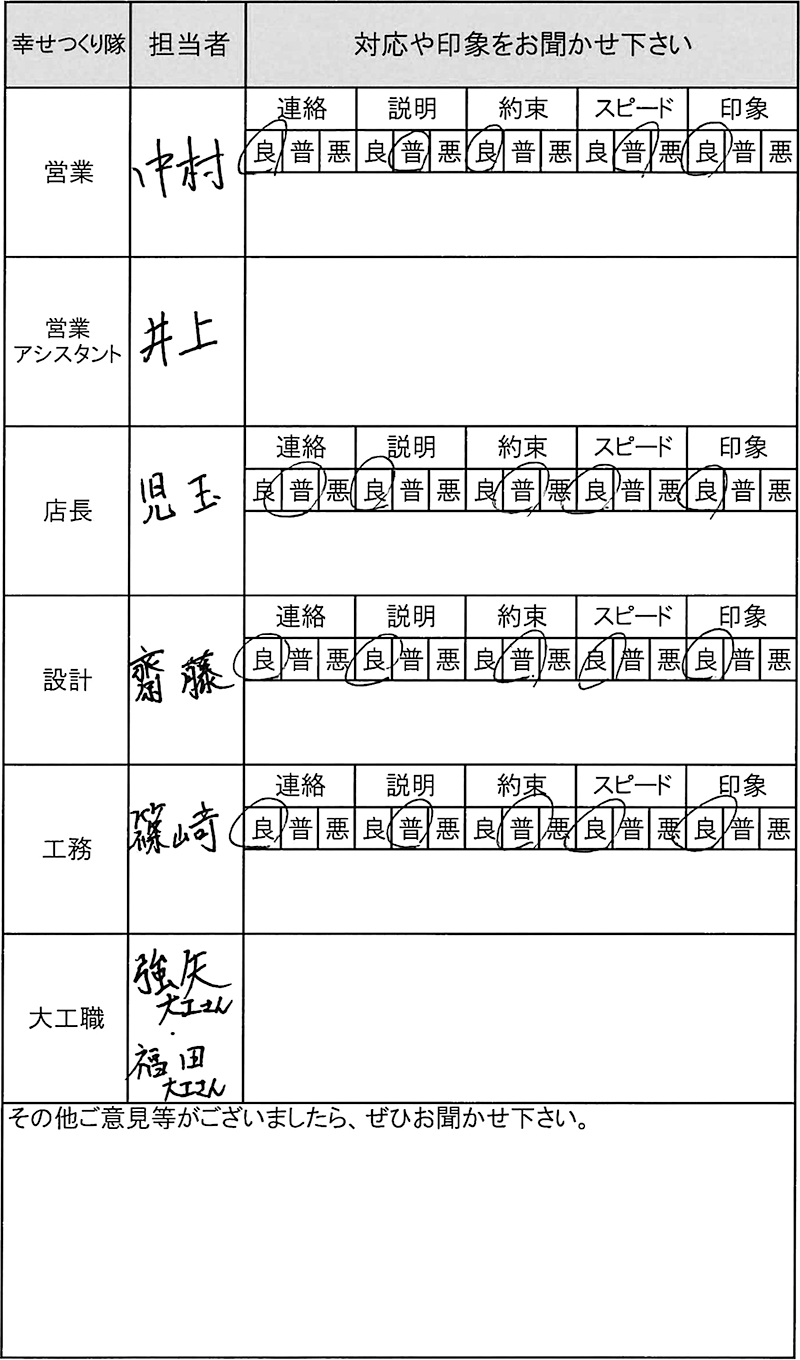 幸せつくり隊 担当者 対応や印象をお聞かせ下さい
連絡 説明 約束 スピード 印象
良 普 悪 良 普 悪 良 普 悪 良 普 悪 良 普 悪
営業 中村
営業
アシスタント 井上
連絡 説明 約束 スピード 印象
良 普 悪 良 普 悪 良 普 悪 良 普 悪 良 普 悪
店長 児玉
連絡 説明 約束 スピード 印象
良 普 悪 良 普 悪 良 普 悪 良 普 悪 良 普 悪
設計 齋藤
連絡 説明 約束 スピード 印象
良 普 悪 良 普 悪 良 普 悪 良 普 悪 良 普 悪
工務 篠崎
強矢
大工さん
大工職
福田
大工さん
その他ご意見等がございましたら、ぜひお聞かせ下さい。